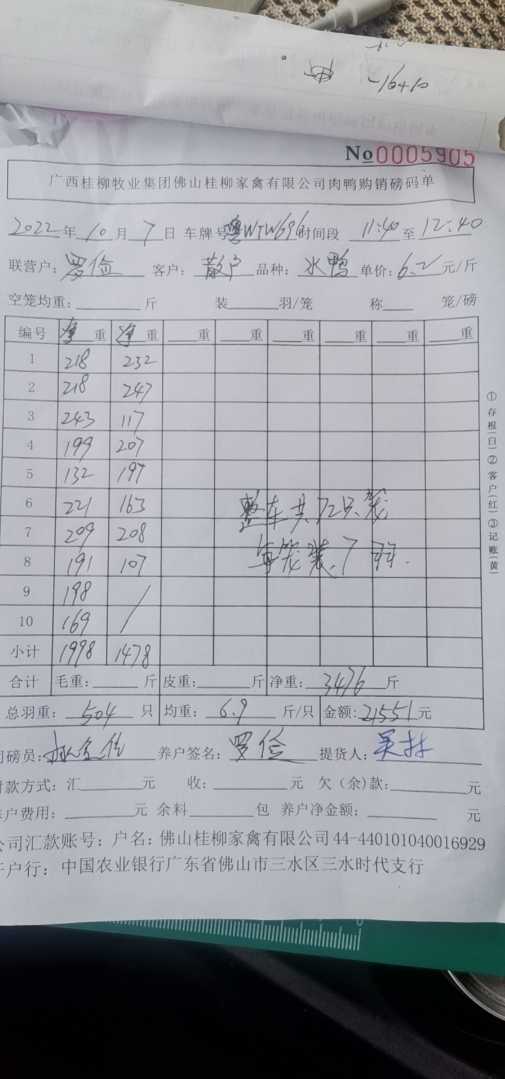 -16+10
No 0005905
广西桂柳牧业集团佛山桂柳家禽有限公司肉鸭购销磅码单
2022年10月7日 车牌号粤WTW696时间段 11:40至12:40
联营户:罗俭 客户:散户 品种:水鸭 单价:6.2元/斤
空笼均重: 斤 装 羽/笼 称 笼/磅
编号 净重 净重 重 重 重 重 重
1 218 232
2 218 247
3 243 117
4 199 207
5 132 197
6 221 163
7 209 208
8 191 107
9 198 /
10 169 /
小计 1998 1478
整车共72只笼
每笼装7羽.
合计 毛重: 斤 皮重: 斤 净重:3476斤
总羽重:504只 均重:6.9斤/只 金额:21551元
司磅员: 养户签名:罗俭 提货人:
付款方式:汇 元 收: 元 欠(余)款: 元
养户费用: 元 余料 包 养户净金额: 元
公司汇款账号:户名:佛山桂柳家禽有限公司44-440101040016929
开户行:中国农业银行广东省佛山市三水区三水时代支行
①存根(白)②客户(红)③记账(黄)